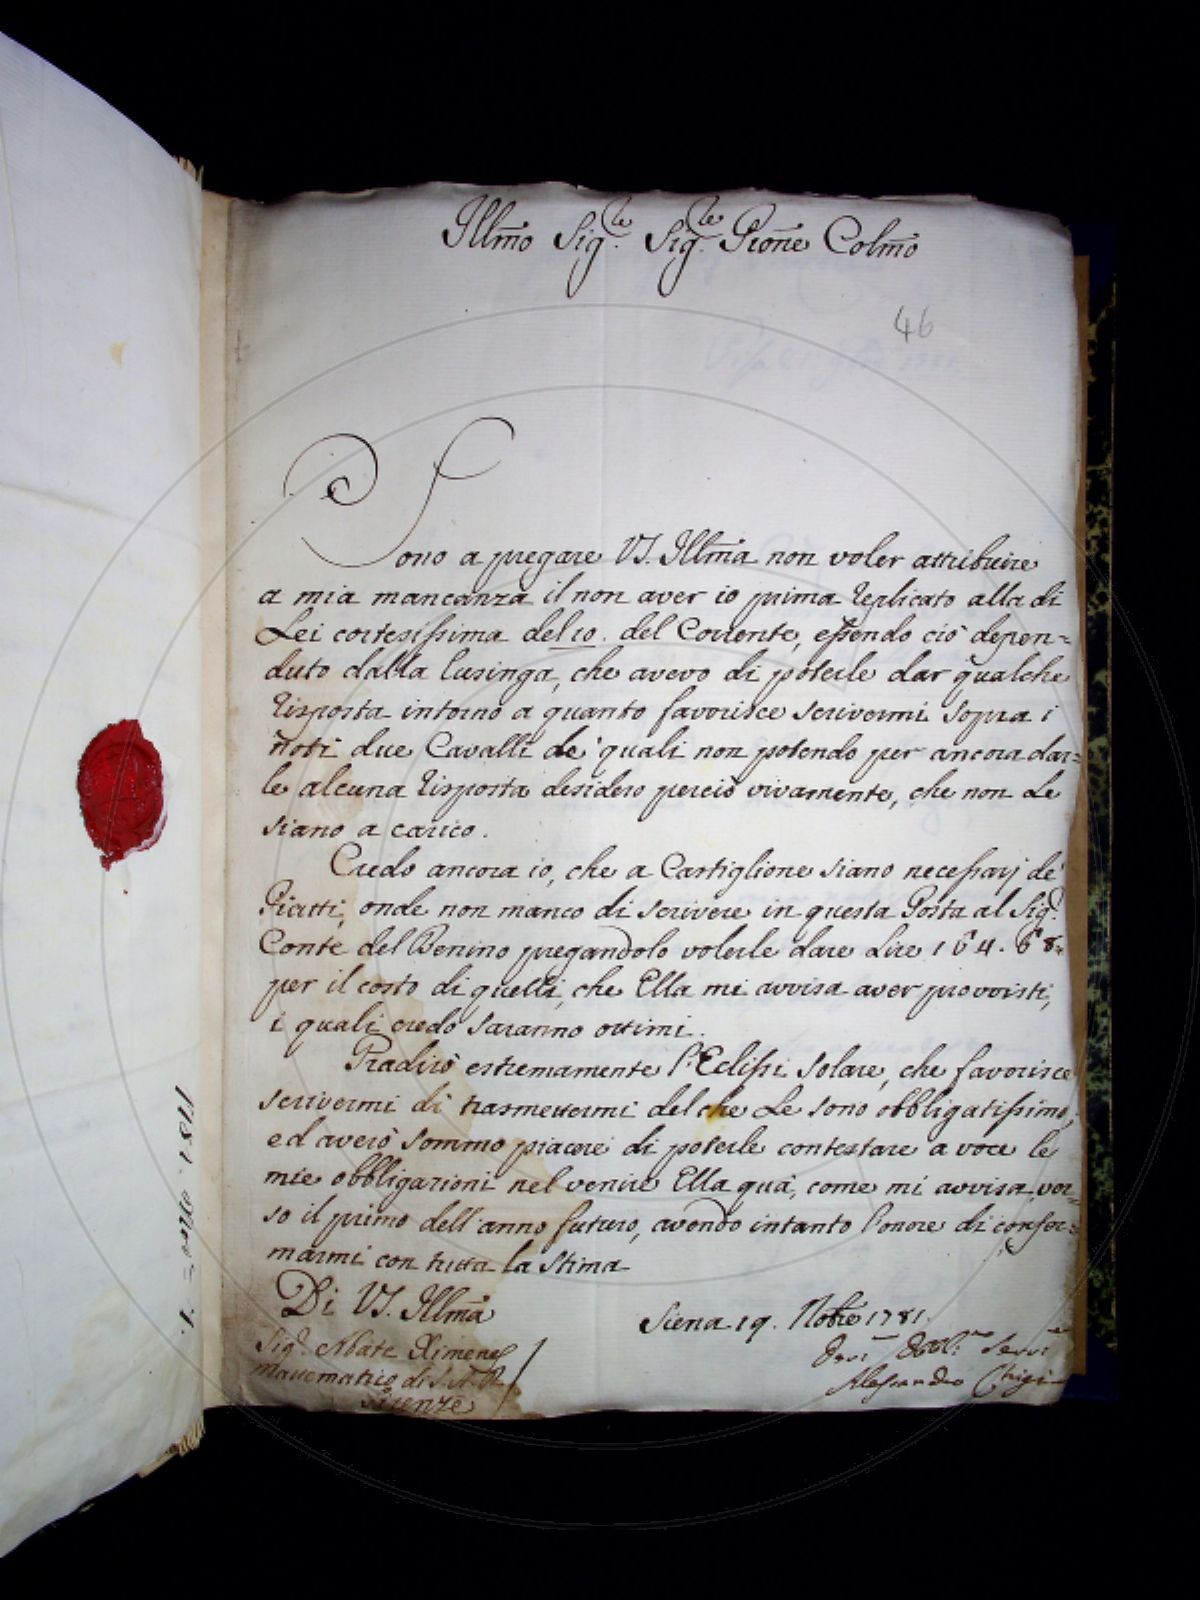 Illmo Sig.re Sig.re Prone Colmo
46
Sono a pregare VS. Illma non voler attribuire
a mia mancanza il non aver io prima replicato alla di
Lei cortesissima del 10. del Corrente, essendo ciò depen=
duto dalla lusinga, che avevo di poterle dar qualche
risposta intorno a quanto favorisce scrivermi sopra i
noti due Cavalli de' quali non potendo per ancora dar=
le alcuna risposta desidero perciò vivamente, che non Le
siano a carico.
Credo ancora io, che a Castiglione siano necessarj de'
Piatti, onde non manco di scrivere in questa Posta al Sig.
Conte del Benino pregandolo volerle dare Lire 164. 6 8
per il costo di quelli, che Ella mi avvisa aver provvisti,
i quali credo saranno ottimi.
Gradirò estremamente l'Eclissi Solare, che favorisce
scrivermi di trasmettermi del che Le sono obbligatissimo,
ed averò sommo piacere di poterle contestare a voce le
mie obbligazioni nel venire Ella quà, come mi avvisa, ver=
so il primo dell'anno futuro, avendo intanto l'onore di confer=
marmi con tutta la stima
Di VS. Illma
Siena 19. Nobre 1781.
Sig. Abate Ximenes
Matematico di S.A.R.
Firenze
Alessandro Chigi
1781.